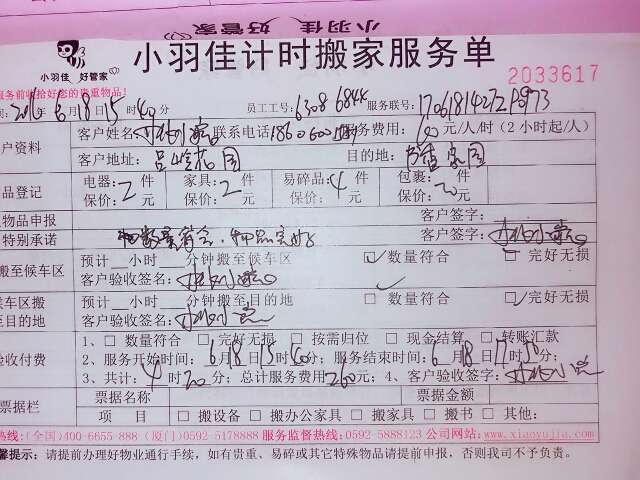 小羽佳 好管家
小羽佳 好管家
小羽佳计时搬家服务单
服务前收拾好您的贵重物品!
2033617
6月18日15时40分 员工工号: 6308 6844 服务联号: 17061814272P0973
户资料 客户姓名 联系电话 服务费用: 元/人/时(2小时起/人)
客户地址: 吕岭花园 目的地: 家园
品登记 电器: 2件 家具: 2件 易碎品: 4件 包裹: 件
保价: 元 保价: 元 保价: 元 保价: 元
物品申报 客户签字:
特别承诺 客户签字:
搬至候车区 预计 小时 分钟搬至候车区 ☑ 数量符合 □ 完好无损
客户验收签名:
候车区搬 预计 小时 分钟搬至目的地 □ 数量符合 ☑ 完好无损
至目的地 客户验收签名:
验收付费 1、□ 数量符合 □ 完好无损 □ 按需归位 □ 现金结算 □ 转账汇款
2、服务开始时间: 6月18日15时40分; 服务结束时间: 6月18日17时50分;
3、共计: 4时20分; 总计服务费用260元; 4、客户验收签字:
票据栏 票据名称 票据金额
项目 □ 搬设备 □ 搬办公家具 □ 搬家具 □ 搬书 □ 其他:
热线: (全国)400-6655-888 (厦门)0592-5178888 服务监督热线: 0592-5888123 公司网站: www.xiaoyujia.com
馨提示: 请提前办理好物业通行手续, 如有贵重、易碎或其它特殊物品请提前申报, 否则我司不予负责。